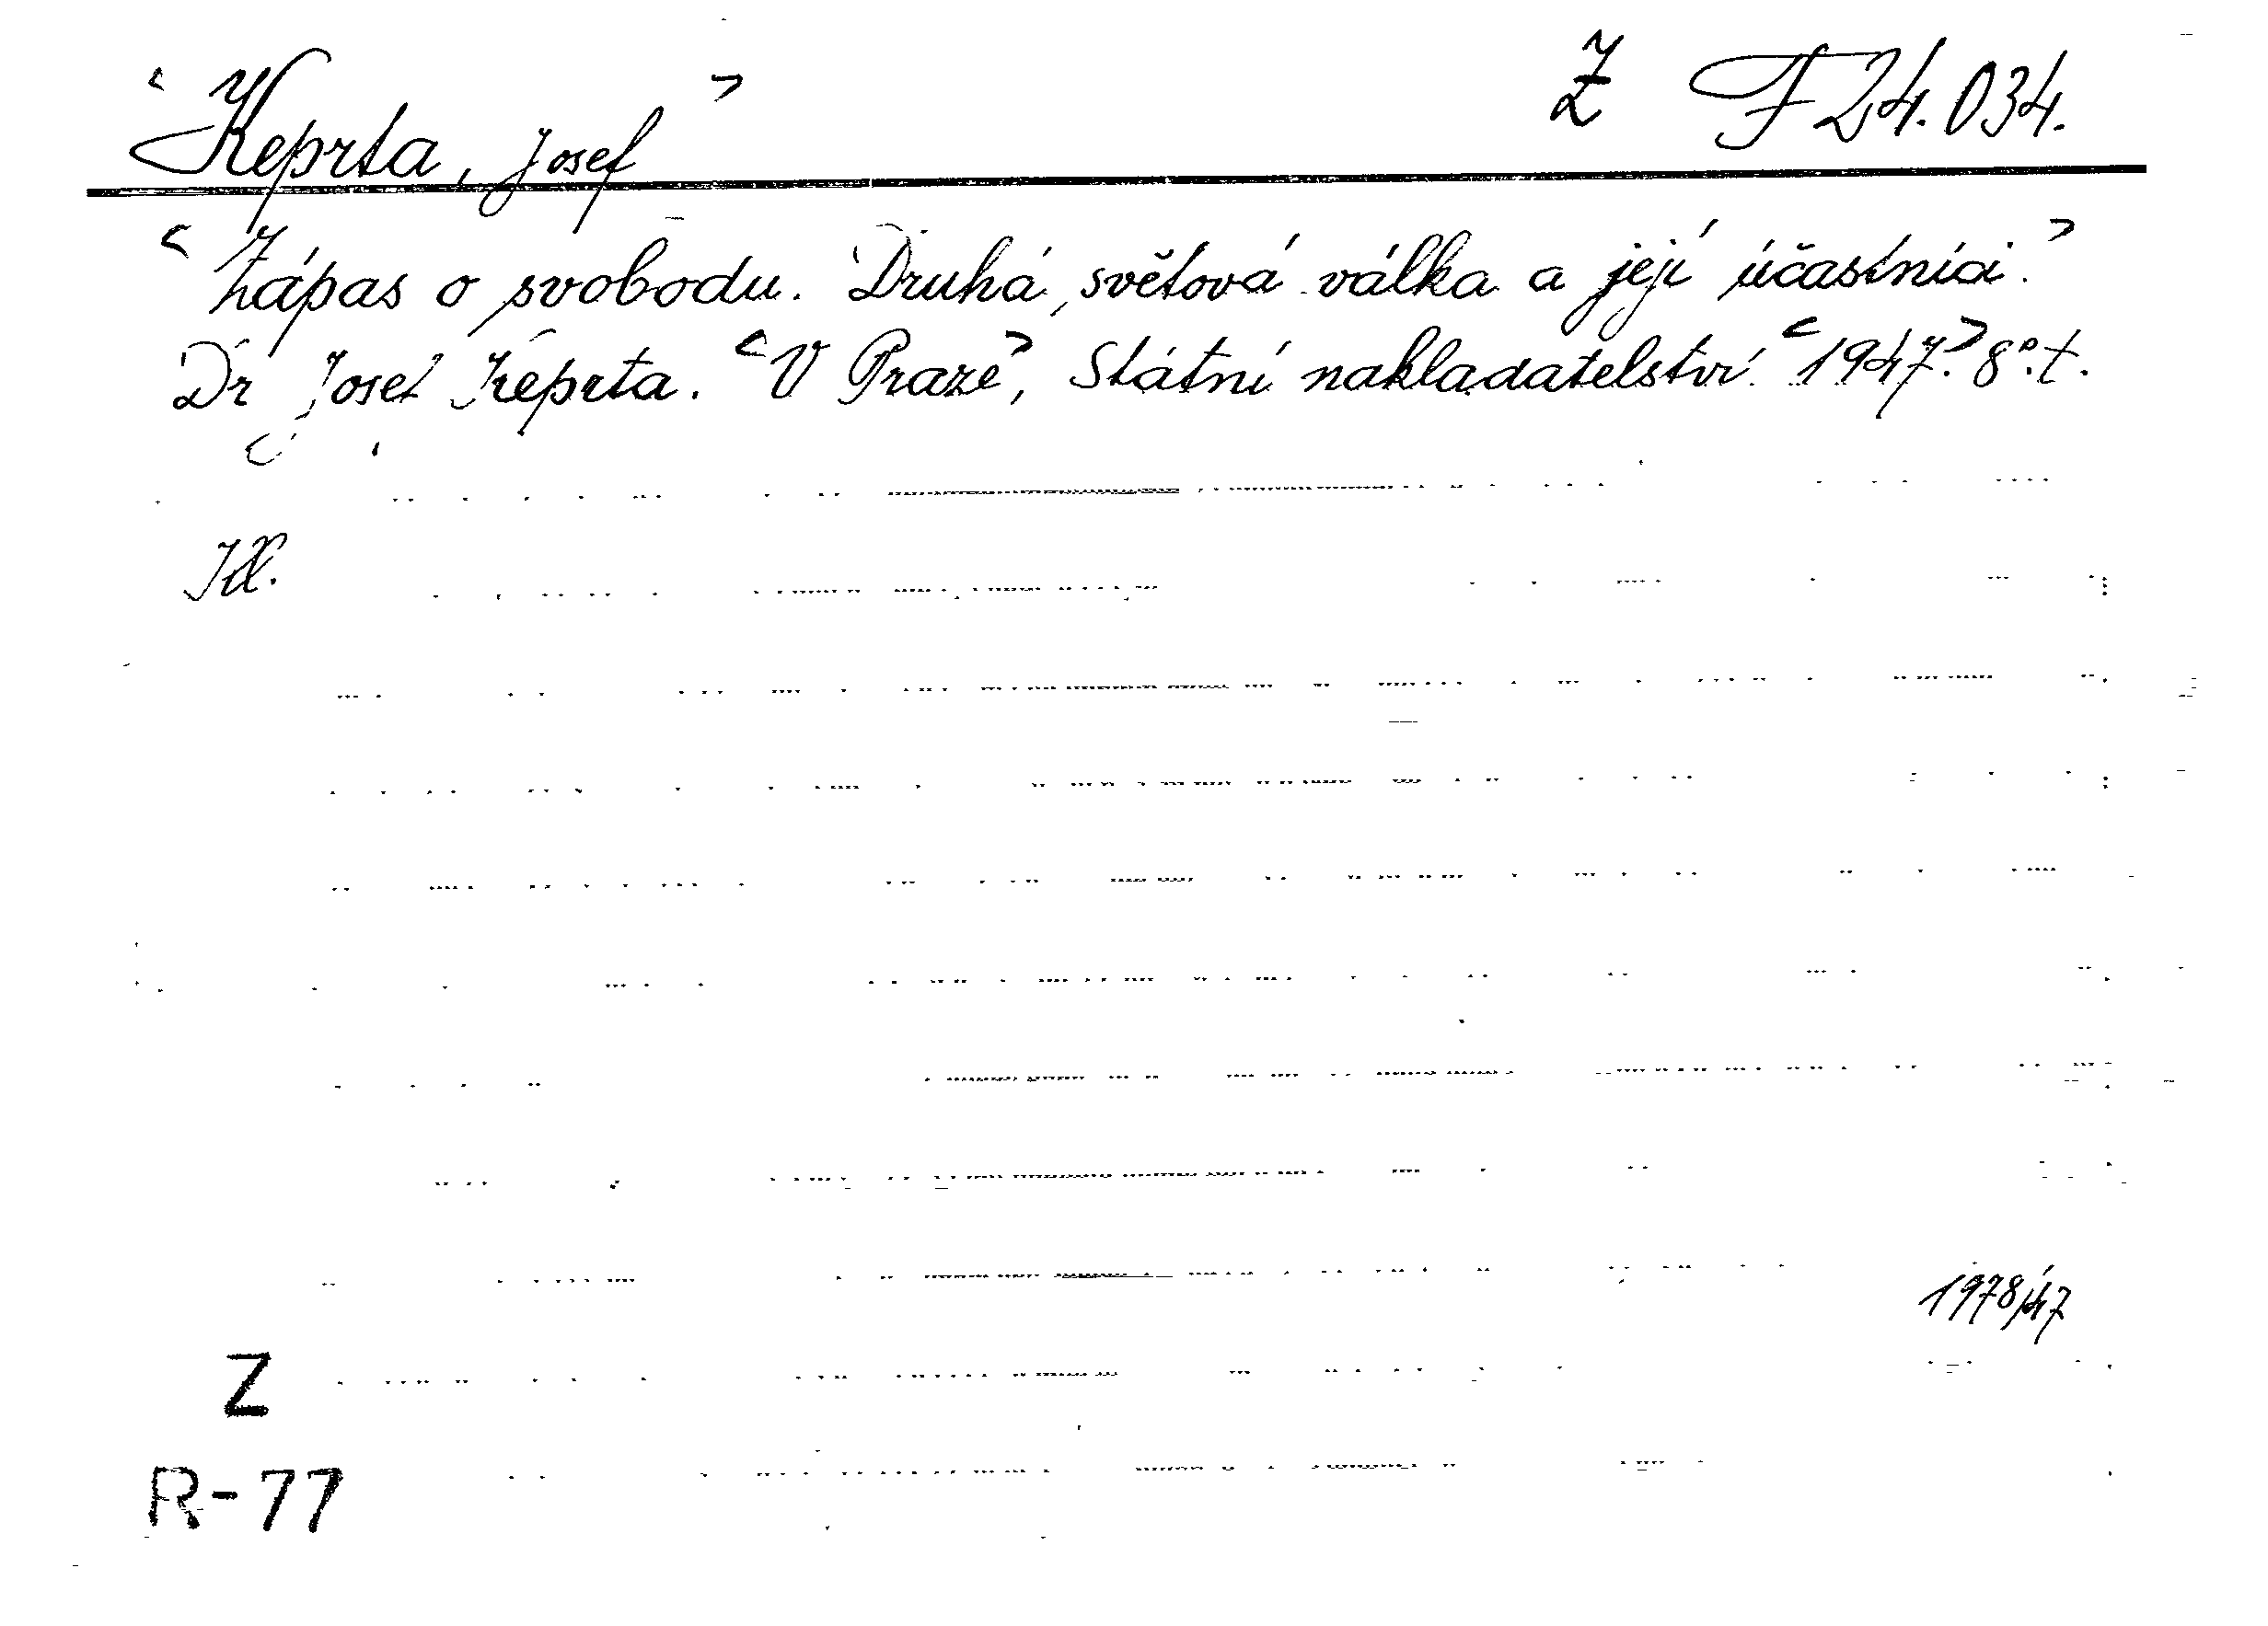 <Keprta, Josef> Z F 24.034.
<Zápas o svobodu. Druhá světová válka a její účastníci.>
Dr Josef Keprta. <V Praze>, Státní nakladatelství <1947.> 8°. t.
1978/47
Z
R-77